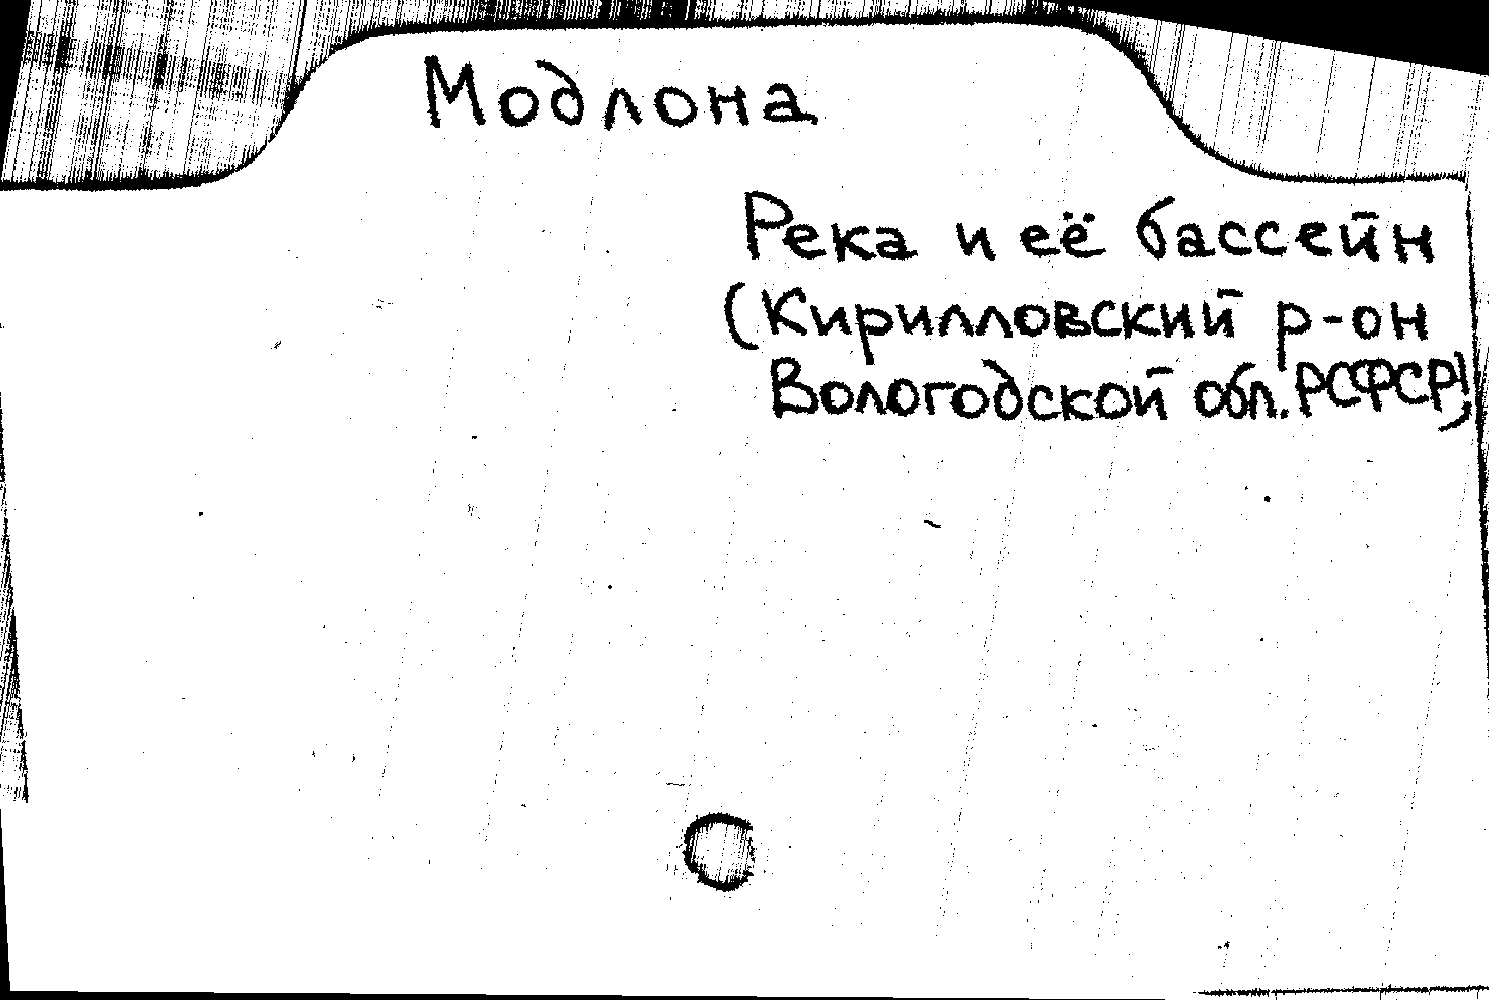 Модлона
Река и её бассейн
(Кирилловский р-он
Вологодской обл. РСФСР)